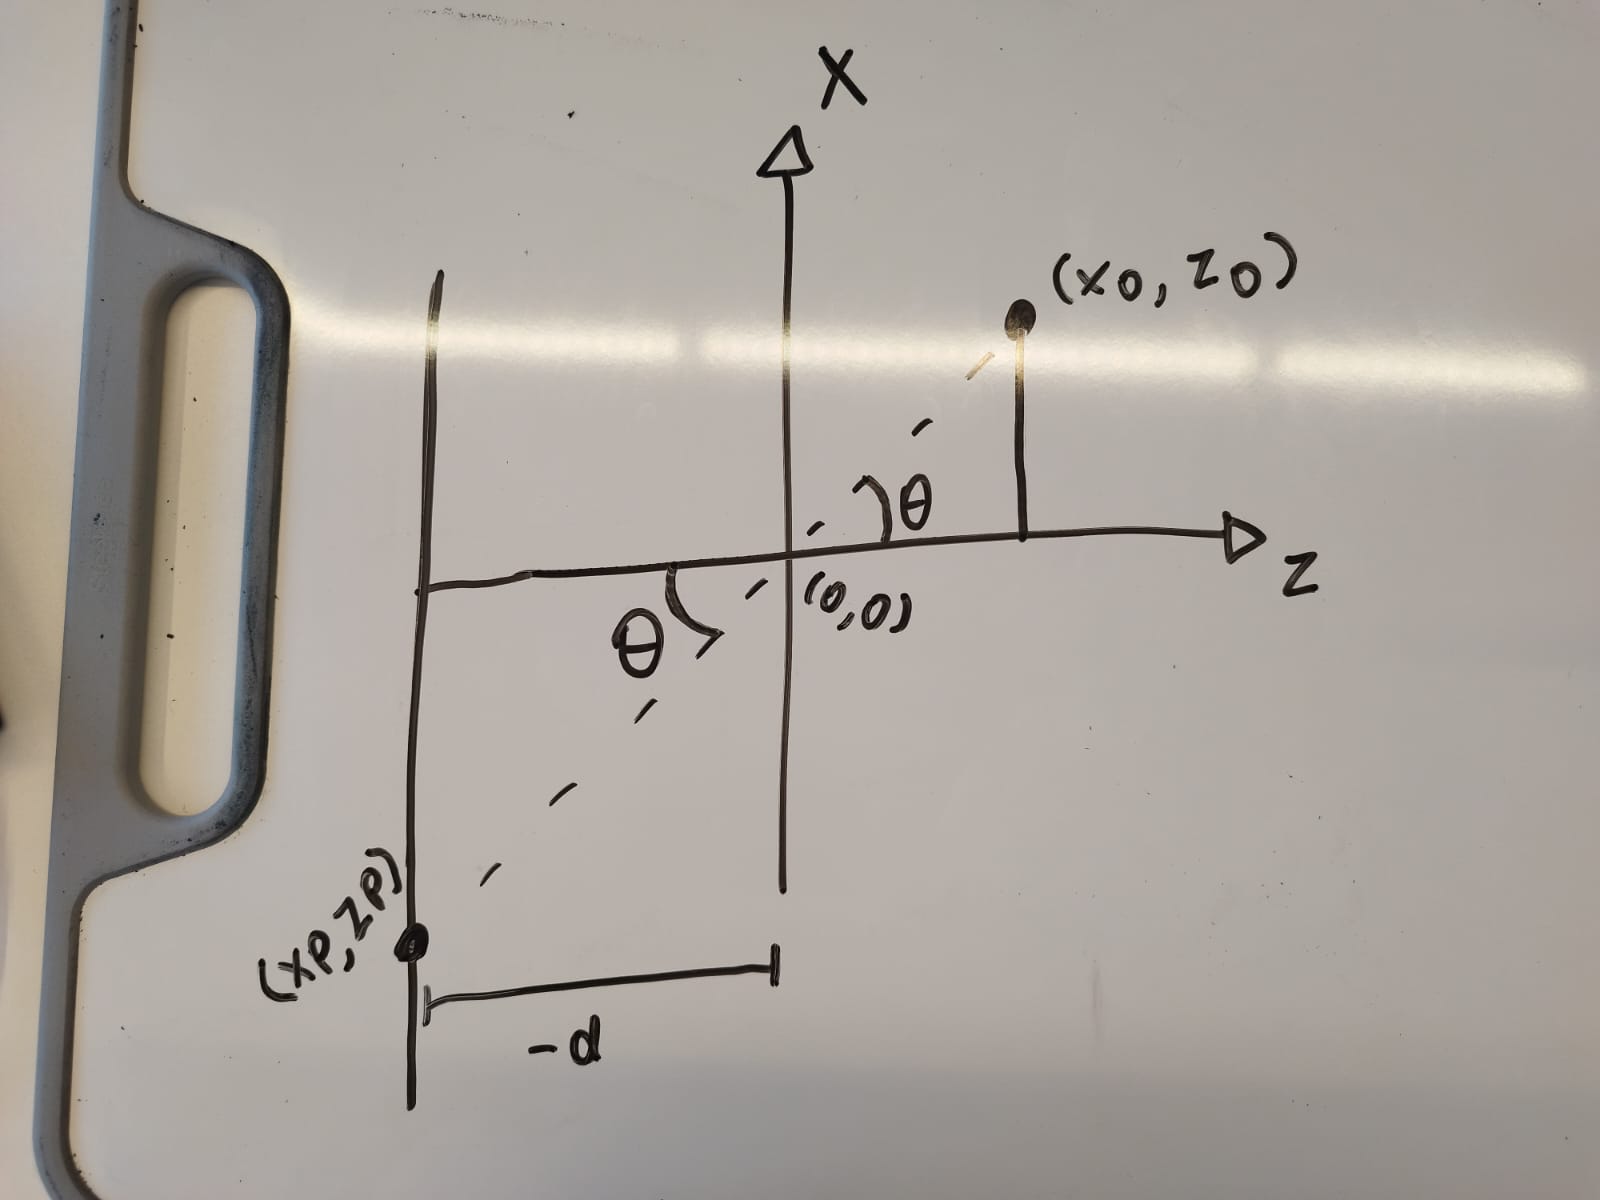 X
(xo, zo)
θ
z
(0,0)
θ
(xp, zp)
-d